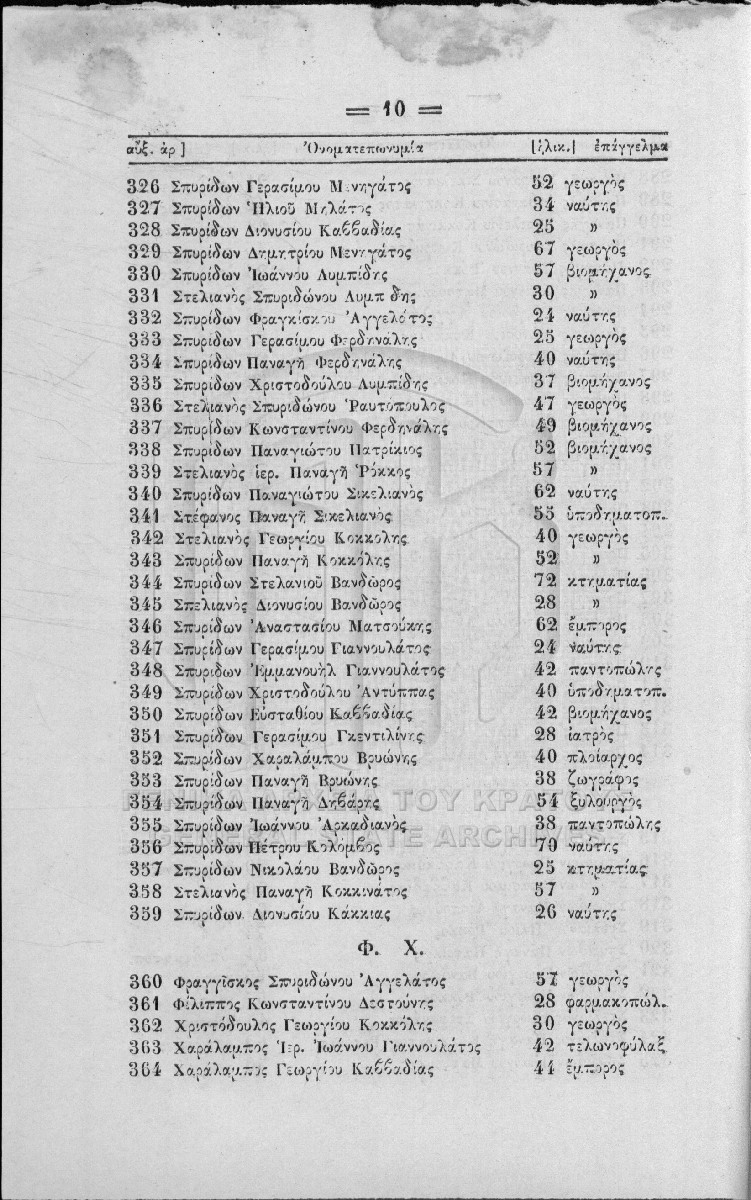 = 10 =
αὔξ. ἀρ ] Ὀνοματεπωνυμία [ἡλικ.] ἐπάγγελμα
326 Σπυρίδων Γερασίμου Μενηγάτος 52 γεωργὸς
327 Σπυρίδων Ἡλιοῦ Μηλάτος 34 ναύτης
328 Σπυρίδων Διονυσίου Καββαδίας 25 »
329 Σπυρίδων Δημητρίου Μενηγάτος 67 γεωργὸς
330 Σπυρίδων Ἰωάννου Λυμπίδης 57 βιομήχανος
331 Στελιανὸς Σπυριδώνου Λυμπ δης 30 »
332 Σπυρίδων Φραγκίσκου Ἀγγελάτος 24 ναύτης
333 Σπυρίδων Γερασίμου Φερδηνάλης 25 γεωργὸς
334 Σπυρίδων Παναγῆ Φερδηνάλης 40 ναύτης
335 Σπυρίδων Χριστοδούλου Λυμπίδης 37 βιομήχανος
336 Στελιανὸς Σπυριδώνου Ῥαυτόπουλος 47 γεωργὸς
337 Σπυρίδων Κωνσταντίνου Φερδηνάλης 49 βιομήχανος
338 Σπυρίδων Παναγιώτου Πατρίκιος 52 βιομήχανος
339 Στελιανὸς ἱερ. Παναγῆ Ῥόκκος 57 »
340 Σπυρίδων Παναγιώτου Σικελιανὸς 62 ναύτης
341 Στέφανος Παναγῆ Σικελιανὸς 55 ὑποδηματοπ.
342 Στελιανὸς Γεωργίου Κοκκόλης 40 γεωργὸς
343 Σπυρίδων Παναγῆ Κοκκόλης 52 »
344 Σπυρίδων Στελανιοῦ Βανδῶρος 72 κτηματίας
345 Σπελιανὸς Διονυσίου Βανδῶρος 28 »
346 Σπυρίδων Ἀναστασίου Ματσούκης 62 ἔμπορος
347 Σπυρίδων Γερασίμου Γιαννουλάτος 24 ναύτης
348 Σπυρίδων Ἐμμανουὴλ Γιαννουλάτος 42 παντοπώλης
349 Σπυρίδων Χριστοδούλου Ἀντύππας 40 ὑποδηματοπ.
350 Σπυρίδων Εὐσταθίου Καββαδίας 42 βιομήχανος
351 Σπυρίδων Γερασίμου Γκεντιλίνης 28 ἰατρὸς
352 Σπυρίδων Χαραλάμπου Βρυώνης 40 πλοίαρχος
353 Σπυρίδων Παναγῆ Βρυώνης 38 ζωγράφος
354 Σπυρίδων Παναγῆ Δηβάρης 54 ξυλουργὸς
355 Σπυρίδων Ἰωάννου Ἀρκαδιανὸς 38 παντοπώλης
356 Σπυρίδων Πέτρου Κολόμβος 70 ναύτης
357 Σπυρίδων Νικολάου Βανδῶρος 25 κτηματίας
358 Στελιανὸς Παναγῆ Κοκκινάτος 57 »
359 Σπυρίδων Διονυσίου Κάκκιας 26 ναύτης
Φ. Χ.
360 Φραγγῖσκος Σπυριδώνου Ἀγγελάτος 57 γεωργὸς
361 Φίλιππος Κωνσταντίνου Δεστούνης 28 φαρμακοπώλ.
362 Χριστόδουλος Γεωργίου Κοκκόλης 30 γεωργὸς
363 Χαράλαμπος Ἱερ. Ἰωάννου Γιαννουλάτος 42 τελωνοφύλαξ
364 Χαράλαμπος Γεωργίου Καββαδίας 44 ἔμπορος